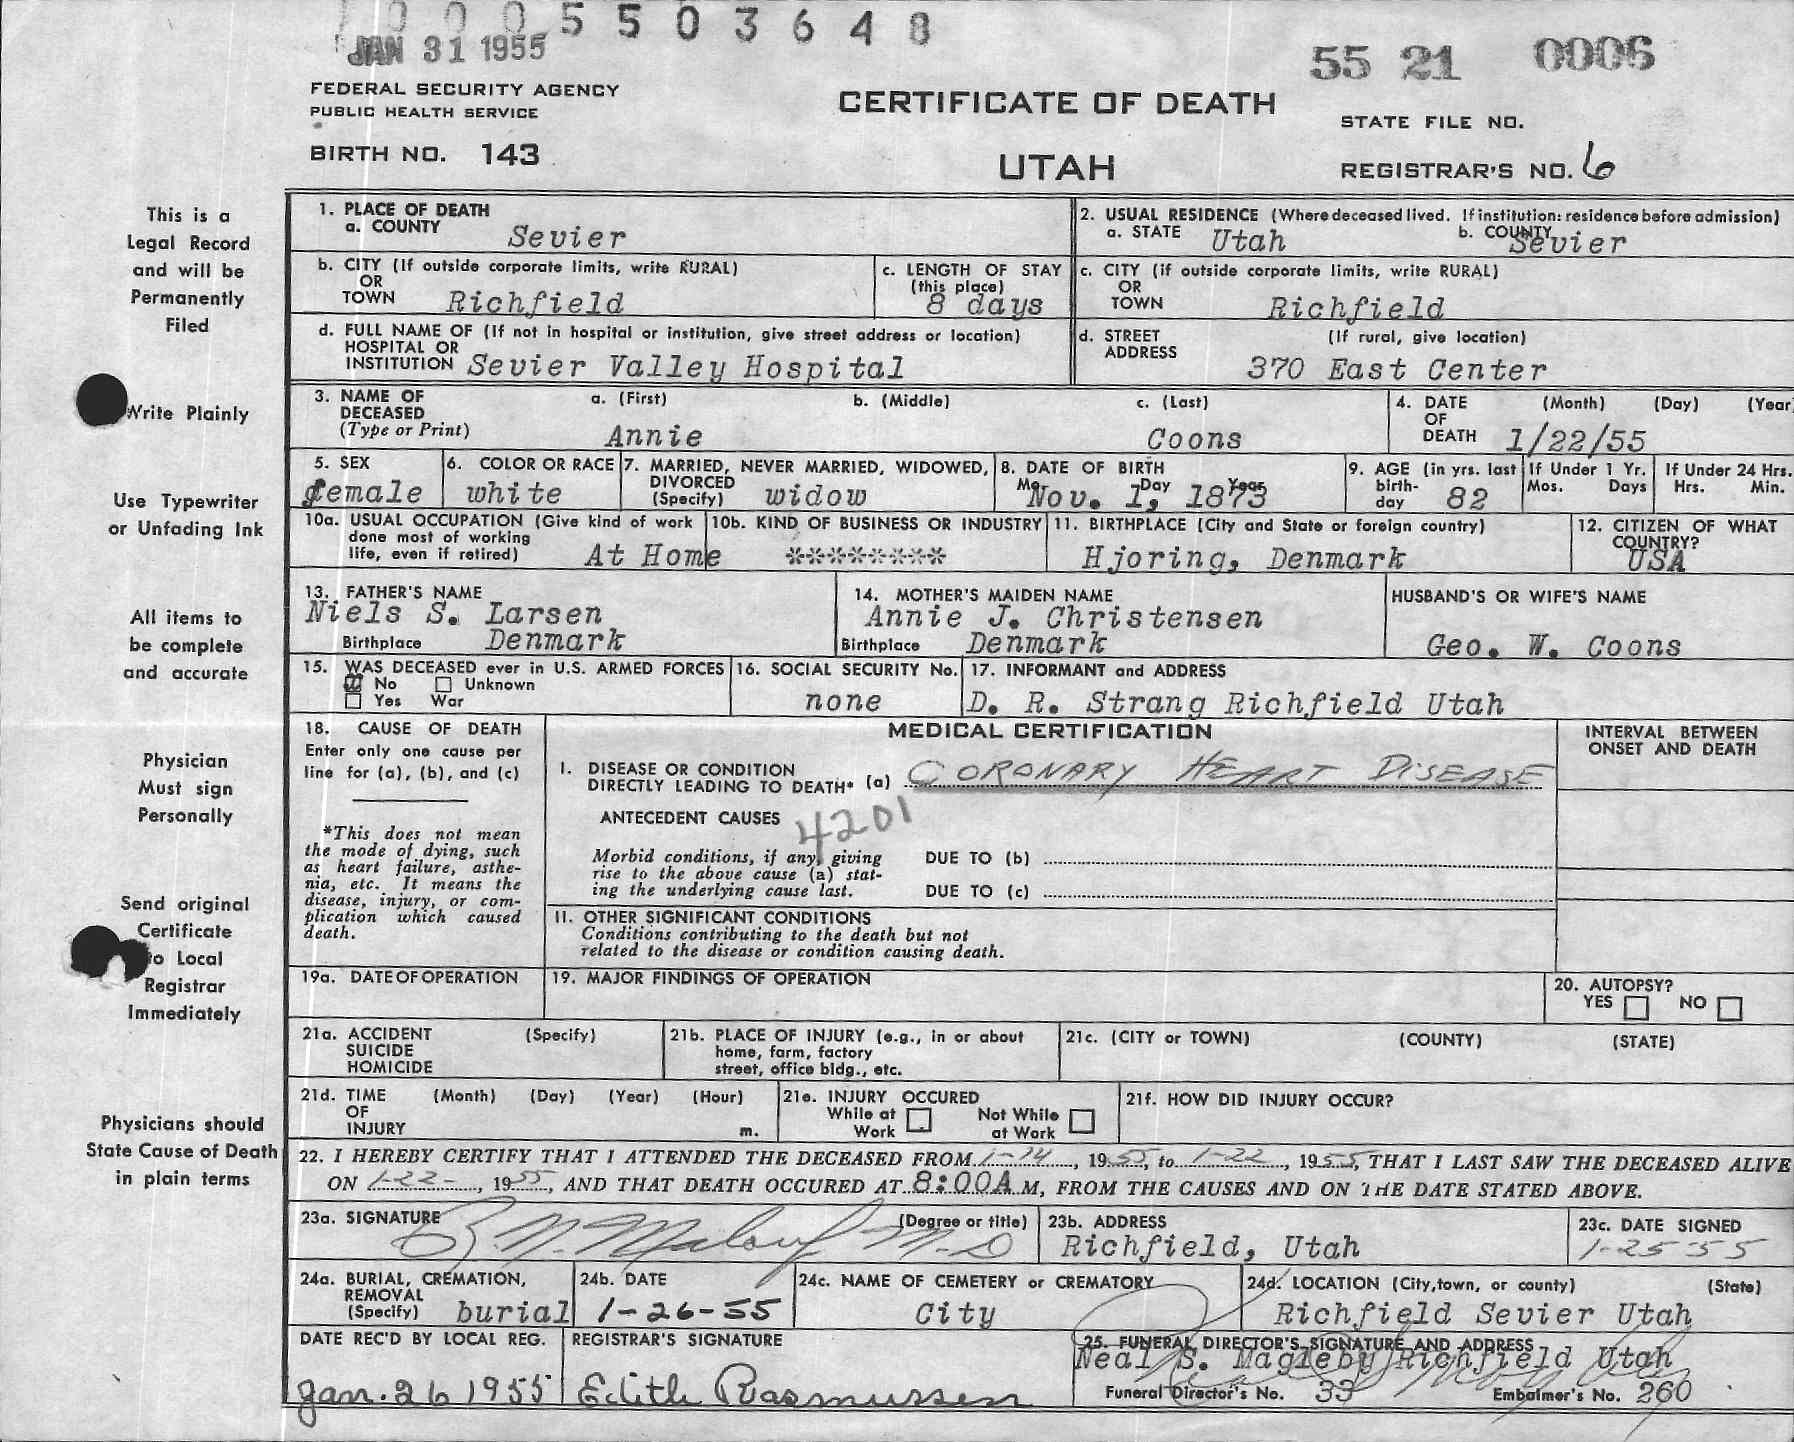 0005503648
JAN 31 1955
55 21 0006
FEDERAL SECURITY AGENCY
PUBLIC HEALTH SERVICE
CERTIFICATE OF DEATH
STATE FILE NO.
BIRTH NO. 143
UTAH
REGISTRAR'S NO. 6
This is a
Legal Record
and will be
Permanently
Filed
Write Plainly
Use Typewriter
or Unfading Ink
All items to
be complete
and accurate
Physician
Must sign
Personally
Send original
Certificate
to Local
Registrar
Immediately
Physicians should
State Cause of Death
in plain terms
1. PLACE OF DEATH
a. COUNTY Sevier
2. USUAL RESIDENCE (Where deceased lived. If institution: residence before admission)
a. STATE Utah b. COUNTY Sevier
b. CITY (If outside corporate limits, write RURAL)
OR
TOWN Richfield
c. LENGTH OF STAY
(this place)
8 days
c. CITY (if outside corporate limits, write RURAL)
OR
TOWN Richfield
d. FULL NAME OF (If not in hospital or institution, give street address or location)
HOSPITAL OR
INSTITUTION Sevier Valley Hospital
d. STREET (If rural, give location)
ADDRESS
370 East Center
3. NAME OF a. (First) b. (Middle) c. (Last)
DECEASED
(Type or Print) Annie Coons
4. DATE (Month) (Day) (Year
OF
DEATH 1/22/55
5. SEX
female
6. COLOR OR RACE
white
7. MARRIED, NEVER MARRIED, WIDOWED,
DIVORCED
(Specify) widow
8. DATE OF BIRTH
Mo. Day Year
Nov. 1, 1873
9. AGE (in yrs. last
birth-
day 82
If Under 1 Yr.
Mos. Days
If Under 24 Hrs.
Hrs. Min.
10a. USUAL OCCUPATION (Give kind of work
done most of working
life, even if retired) At Home
10b. KIND OF BUSINESS OR INDUSTRY
********
11. BIRTHPLACE (City and State or foreign country)
Hjoring, Denmark
12. CITIZEN OF WHAT
COUNTRY?
USA
13. FATHER'S NAME
Niels S. Larsen
Birthplace Denmark
14. MOTHER'S MAIDEN NAME
Annie J. Christensen
Birthplace Denmark
HUSBAND'S OR WIFE'S NAME
Geo. W. Coons
15. WAS DECEASED ever in U.S. ARMED FORCES
No Unknown
Yes War
16. SOCIAL SECURITY No.
none
17. INFORMANT and ADDRESS
D. R. Strang Richfield Utah
18. CAUSE OF DEATH
Enter only one cause per
line for (a), (b), and (c)
*This does not mean
the mode of dying, such
as heart failure, asthe-
nia, etc. It means the
disease, injury, or com-
plication which caused
death.
MEDICAL CERTIFICATION
INTERVAL BETWEEN
ONSET AND DEATH
I. DISEASE OR CONDITION
DIRECTLY LEADING TO DEATH* (a) CORONARY HEART DISEASE
ANTECEDENT CAUSES 4201
Morbid conditions, if any, giving
rise to the above cause (a) stat-
ing the underlying cause last.
DUE TO (b)
DUE TO (c)
II. OTHER SIGNIFICANT CONDITIONS
Conditions contributing to the death but not
related to the disease or condition causing death.
19a. DATE OF OPERATION
19. MAJOR FINDINGS OF OPERATION
20. AUTOPSY?
YES NO
21a. ACCIDENT (Specify)
SUICIDE
HOMICIDE
21b. PLACE OF INJURY (e.g., in or about
home, farm, factory
street, office bldg., etc.
21c. (CITY or TOWN) (COUNTY) (STATE)
21d. TIME (Month) (Day) (Year) (Hour)
OF
INJURY m.
21e. INJURY OCCURED
While at Work
Not While at Work
21f. HOW DID INJURY OCCUR?
22. I HEREBY CERTIFY THAT I ATTENDED THE DECEASED FROM 1-14, 1955, to 1-22, 1955, THAT I LAST SAW THE DECEASED ALIVE
ON 1-22-, 1955, AND THAT DEATH OCCURED AT 8:00A M, FROM THE CAUSES AND ON THE DATE STATED ABOVE.
23a. SIGNATURE (Degree or title)
M.D
23b. ADDRESS
Richfield, Utah
23c. DATE SIGNED
1-25-55
24a. BURIAL, CREMATION,
REMOVAL
(Specify) burial
24b. DATE
1-26-55
24c. NAME OF CEMETERY or CREMATORY
City
24d. LOCATION (City, town, or county) (State)
Richfield Sevier Utah
DATE REC'D BY LOCAL REG.
Jan. 26 1955
REGISTRAR'S SIGNATURE
Edith Rasmussen
25. FUNERAL DIRECTOR'S SIGNATURE AND ADDRESS
Neal S. Magleby Richfield Utah
Funeral Director's No. 33 Embalmer's No. 260